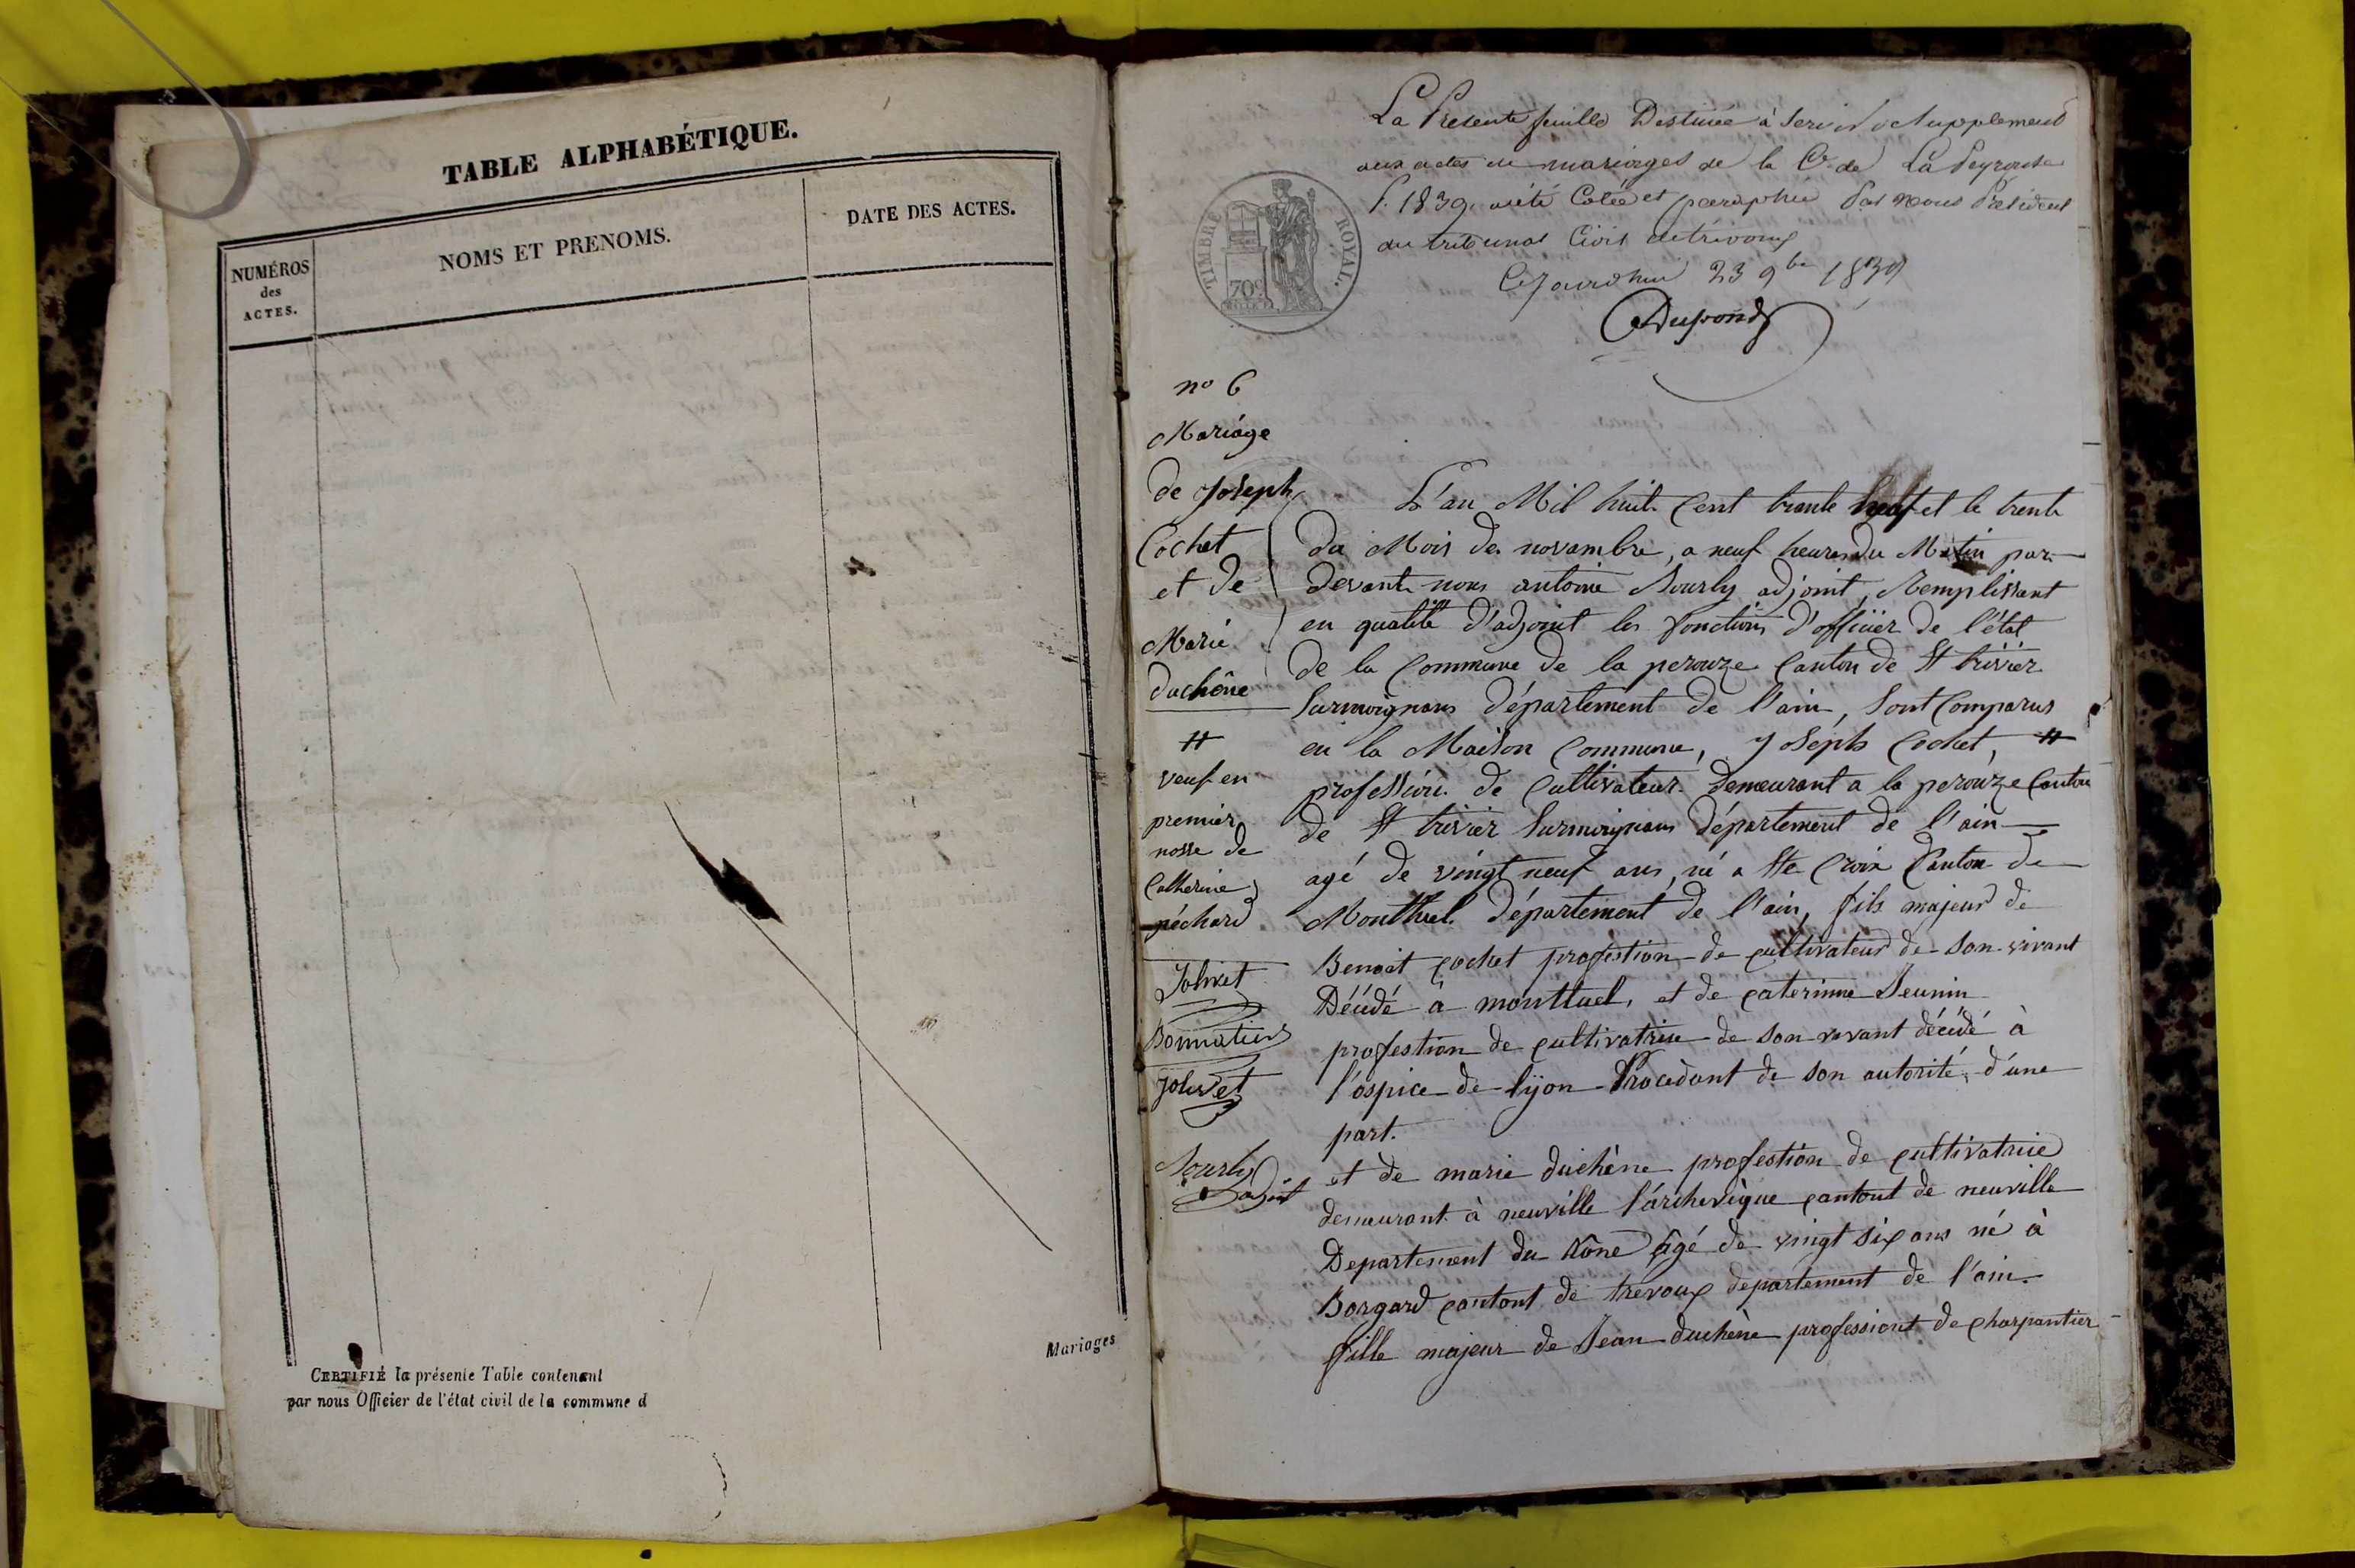 TABLE ALPHABÉTIQUE.
NUMÉROS
des
ACTES.
NOMS ET PRENOMS.
DATE DES ACTES.
CERTIFIÉ la présente Table contenant
par nous Officier de l'état civil de la commune d
Mariages
La Presente feuille Destinée à servir de supplement
aux actes de mariages de la Cne de La Peyrouse
P. 1839. a été Cotée et paraphée Par nous President
du tribunal Civil de trévoux
Cejourdhui 23 9bre 1839
Dupond
TIMBRE ROYAL.
70c
no 6
Mariage
de Joseph
Cochet
et de
Marie
duchêne
#
veuf en
premier
nosse de
Catherine
péchard
Jolivet
Bonnatier
Jolivet
Sourly
adjoint
L'an Mil huit Cent trente neuf et le trente
du Mois de novambre, a neuf heures du Matin par-
devant nous antoine Sourly adjoint, Remplissant
en qualité d'adjoint les fonctions d'officier de l'état
de la Commune de la perouze Canton de St trivier
Surmoignans Département de l'ain, Sont Comparus
en la Maison Commune, Joseph Cochet, #
professión de Cultivateur Demeurant a la perouze Canton
de St trivier Surmoignans Département de l'ain
agé de vingt neuf ans, né a Ste Croix Canton de
Montluel Département de l'ain, fils majeur de
Benoit cochet profestion de cultivateur de son vivant
Décédé à montluel, et de caterinne Jeunin
profestion de cultivatrise de son vivant décédé à
l'ospice de lyon Procèdant de son autorité, d'une
part.
et de marie duchène profestion de cultivatrice
demeurant à neuville l'archevêque cantont de neuville
Departement du Rône âgé de vingt six ans né à
Borgard cantont de trevoux departement de l'ain.
fille majeur de Jean duchène professiont de charpantier